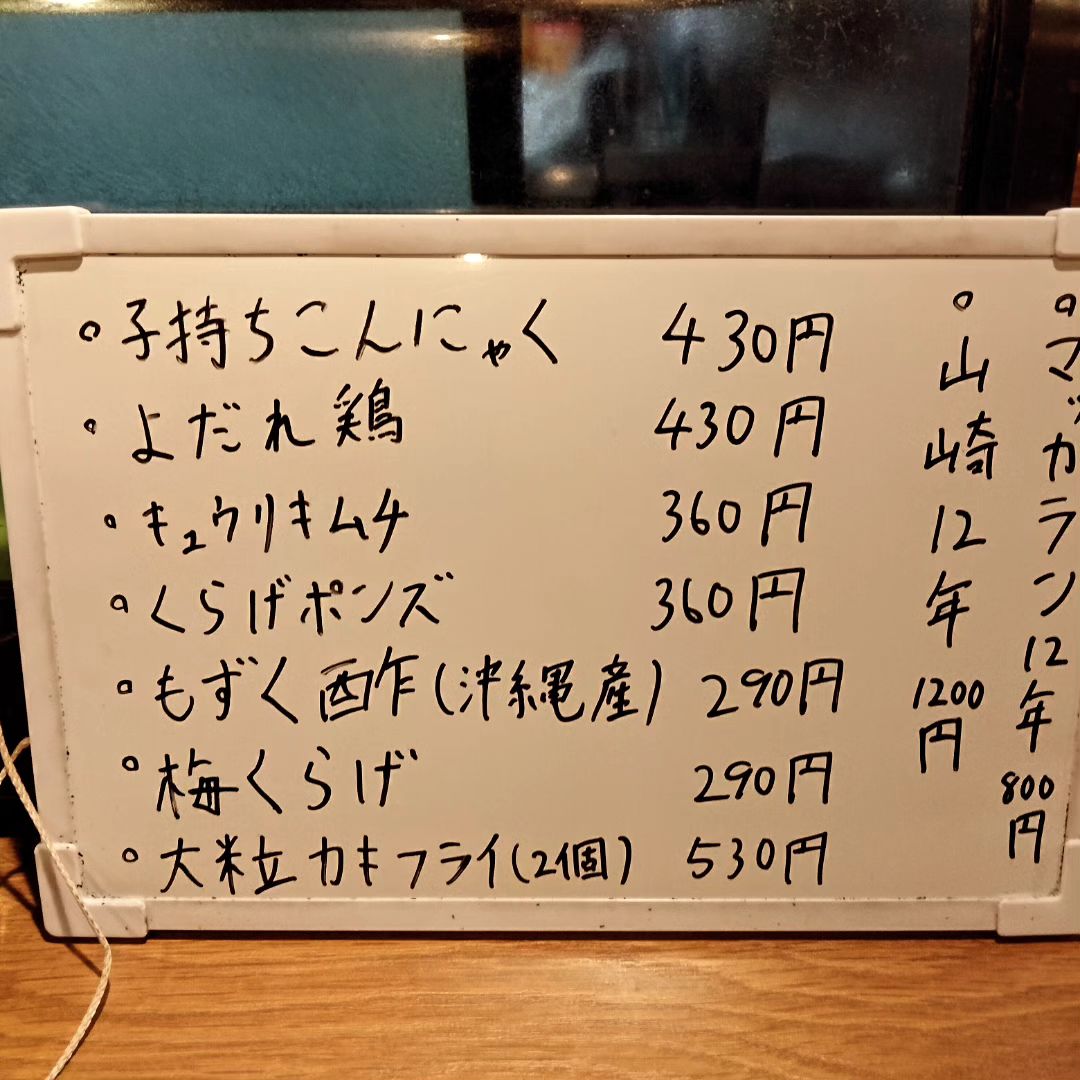 子持ちこんにゃく 430円
よだれ鶏 430円
キュウリキムチ 360円
くらげポンズ 360円
もずく酢(沖縄産) 290円
梅くらげ 290円
大粒カキフライ(2個) 530円
マッカラン12年 800円
山崎12年 1200円